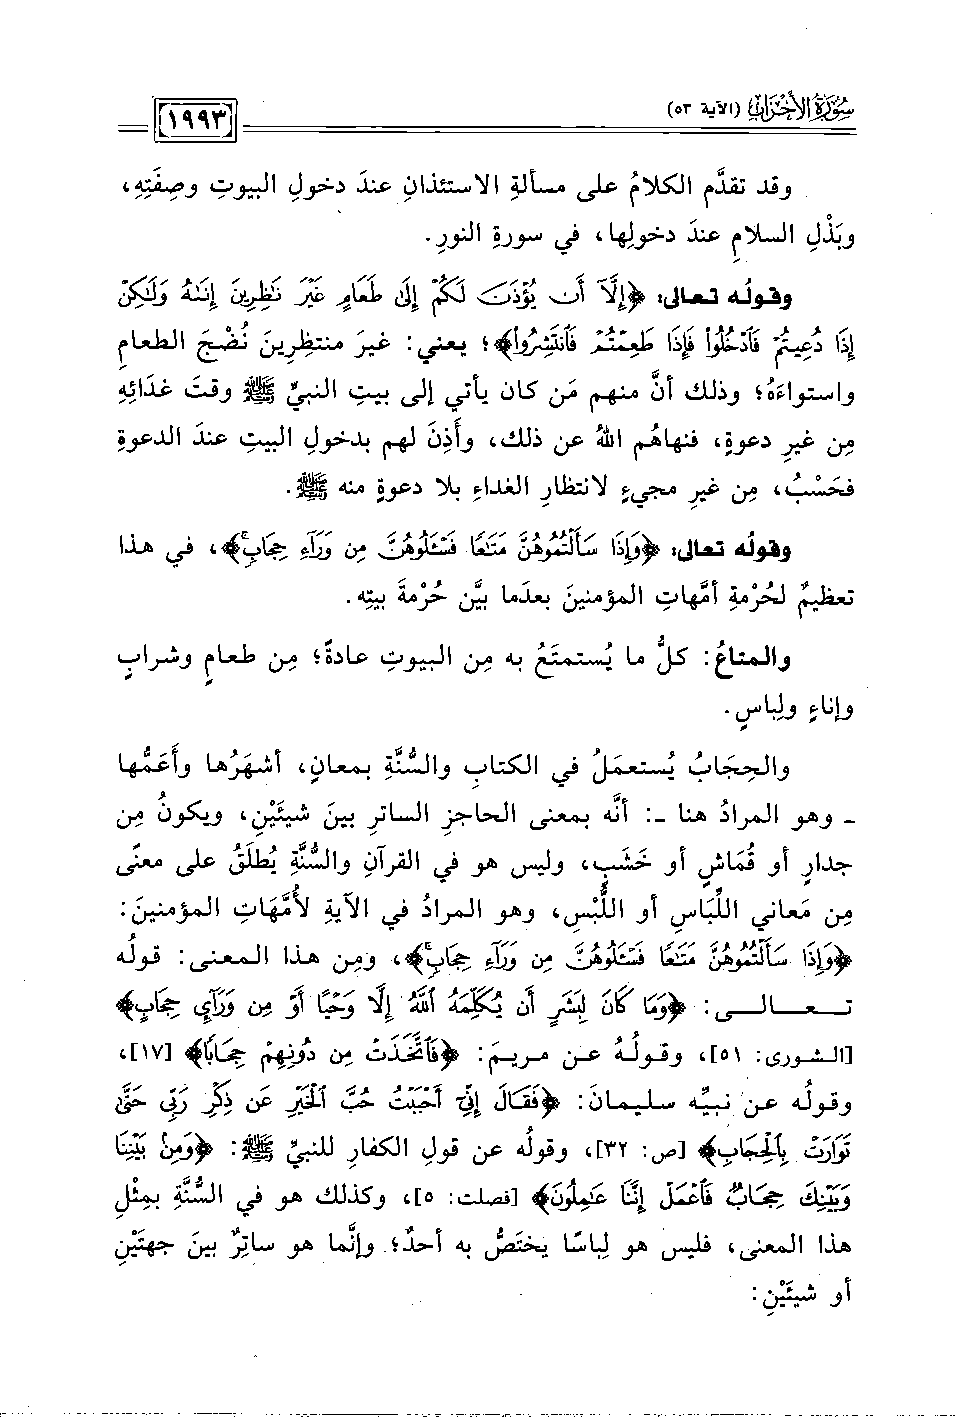 سُورَةُ الأَحْزَابِ (الآية ٥٣)
١٩٩٣
وقد تقدَّم الكلامُ على مسألةِ الاستئذانِ عندَ دخولِ البيوتِ وصِفَتِهِ،
وبَذْلِ السلامِ عندَ دخولِها، في سورةِ النورِ.
وقولُه تعالى: ﴿إِلَّآ أَن يُؤْذَنَ لَكُمْ إِلَىٰ طَعَامٍ غَيْرَ نَٰظِرِينَ إِنَىٰهُ وَلَٰكِنْ
إِذَا دُعِيتُمْ فَٱدْخُلُوا۟ فَإِذَا طَعِمْتُمْ فَٱنتَشِرُوا۟﴾؛ يعني: غيرَ منتظِرِينَ نُضْجَ الطعامِ
واستواءَهُ؛ وذلك أنَّ منهم مَن كان يأتي إلى بيتِ النبيِّ ﷺ وقتَ غَدَائِهِ
مِن غيرِ دعوةٍ، فنهاهُم اللهُ عن ذلك، وأَذِنَ لهم بدخولِ البيتِ عندَ الدعوةِ
فحَسْبُ، مِن غيرِ مجيءٍ لانتظارِ الغداءِ بلا دعوةٍ منه ﷺ.
وقولُه تعالى: ﴿وَإِذَا سَأَلْتُمُوهُنَّ مَتَٰعًا فَسْـَٔلُوهُنَّ مِن وَرَآءِ حِجَابٍۚ﴾، في هذا
تعظيمٌ لحُرْمةِ أمَّهاتِ المؤمنينَ بعدَما بيَّن حُرْمةَ بيتِه.
والمتاعُ: كلُّ ما يُستمتَعُ به مِن البيوتِ عادةً؛ مِن طعامٍ وشرابٍ
وإناءٍ ولِباسٍ.
والحِجَابُ يُستعمَلُ في الكتابِ والسُّنَّةِ بمعانٍ، أشهَرُها وأَعَمُّها
ـ وهو المرادُ هنا ـ: أنَّه بمعنى الحاجزِ الساترِ بينَ شيئَيْنِ، ويكونُ مِن
جدارٍ أو قُمَاشٍ أو خَشَبٍ، وليس هو في القرآنِ والسُّنَّةِ يُطلَقُ على معنًى
مِن مَعاني اللِّبَاسِ أو اللُّبْسِ، وهو المرادُ في الآيةِ لأُمَّهَاتِ المؤمنينَ:
﴿وَإِذَا سَأَلْتُمُوهُنَّ مَتَٰعًا فَسْـَٔلُوهُنَّ مِن وَرَآءِ حِجَابٍۚ﴾، ومِن هذا المعنى: قولُه
تعالى: ﴿وَمَا كَانَ لِبَشَرٍ أَن يُكَلِّمَهُ ٱللَّهُ إِلَّا وَحْيًا أَوْ مِن وَرَآئِ حِجَابٍ﴾
[الشورى: ٥١]، وقولُهُ عن مريمَ: ﴿فَٱتَّخَذَتْ مِن دُونِهِمْ حِجَابًا﴾ [١٧]،
وقولُه عن نبيِّه سليمانَ: ﴿فَقَالَ إِنِّىٓ أَحْبَبْتُ حُبَّ ٱلْخَيْرِ عَن ذِكْرِ رَبِّى حَتَّىٰ
تَوَارَتْ بِٱلْحِجَابِ﴾ [ص: ٣٢]، وقولُه عن قولِ الكفارِ للنبيِّ ﷺ: ﴿وَمِنۢ بَيْنِنَا
وَبَيْنِكَ حِجَابٌ فَٱعْمَلْ إِنَّنَا عَٰمِلُونَ﴾ [فصلت: ٥]، وكذلك هو في السُّنَّةِ بمِثْلِ
هذا المعنى، فليس هو لِباسًا يختَصُّ به أحدٌ؛ وإنَّما هو ساتِرٌ بينَ جهتَيْنِ
أو شيئَيْنِ: